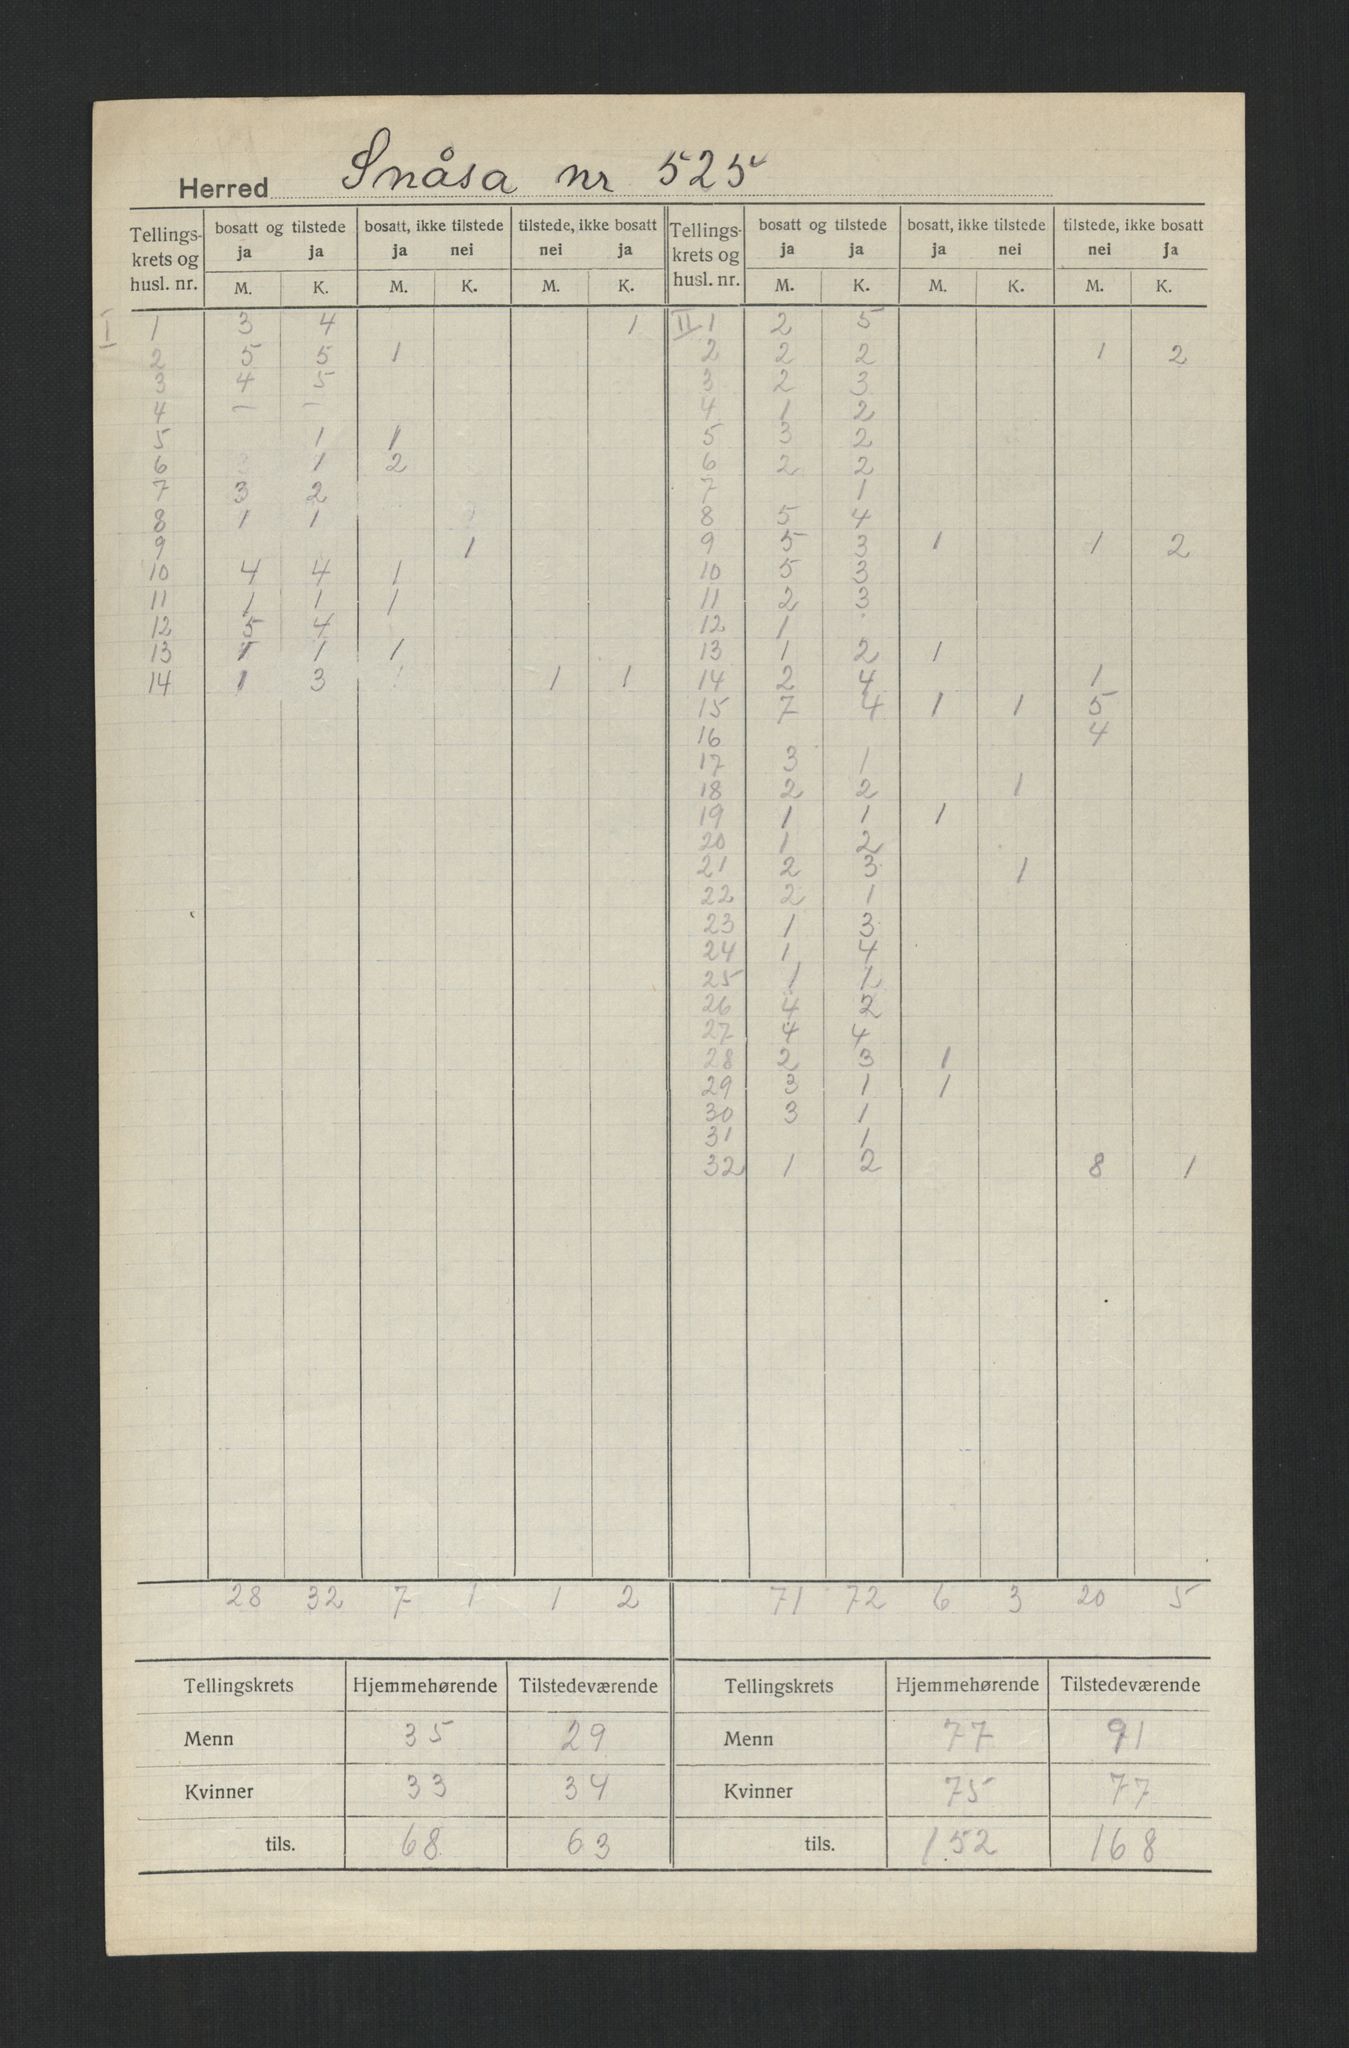 Herred Snåsa nr 525
Tellings-krets og husl. nr. | bosatt og tilstede | bosatt, ikke tilstede | tilstede, ikke bosatt | Tellings-krets og husl. nr. | bosatt og tilstede | bosatt, ikke tilstede | tilstede, ikke bosatt
ja ja | ja nei | nei ja | ja ja | ja nei | nei ja
M. K. | M. K. | M. K. | M. K. | M. K. | M. K.
I 1 | 3 | 4 | | | | 1 | II 1 | 2 | 5 | | | |
2 | 5 | 5 | 1 | | | | 2 | 2 | 2 | | | 1 | 2
3 | 4 | 5 | | | | | 3 | 2 | 3 | | | |
4 | – | – | | | | | 4 | 1 | 2 | | | |
5 | | 1 | 1 | | | | 5 | 3 | 2 | | | |
6 | | 1 | 2 | | | | 6 | 2 | 2 | | | |
7 | 3 | 2 | | | | | 7 | | 1 | | | |
8 | 1 | 1 | | | | | 8 | 5 | 4 | | | |
9 | | | | 1 | | | 9 | 5 | 3 | 1 | | 1 | 2
10 | 4 | 4 | 1 | | | | 10 | 5 | 3 | | | |
11 | 1 | 1 | 1 | | | | 11 | 2 | 3 | | | |
12 | 5 | 4 | | | | | 12 | 1 | | | | |
13 | 1 | 1 | 1 | | | | 13 | 1 | 2 | 1 | | |
14 | 1 | 3 | | | 1 | 1 | 14 | 2 | 4 | | | 1 |
15 | 7 | 4 | 1 | 1 | 5 |
16 | | | | | 4 |
17 | 3 | 1 | | | |
18 | 2 | 2 | | 1 | |
19 | 1 | 1 | 1 | | |
20 | 1 | 2 | | | |
21 | 2 | 3 | | 1 | |
22 | 2 | 1 | | | |
23 | 1 | 3 | | | |
24 | 1 | 4 | | | |
25 | 1 | 1 | | | |
26 | 4 | 2 | | | |
27 | 4 | 4 | | | |
28 | 2 | 3 | 1 | | |
29 | 3 | 1 | 1 | | |
30 | 3 | 1 | | | |
31 | | 1 | | | |
32 | 1 | 2 | | | 8 | 1
28 | 32 | 7 | 1 | 1 | 2 | 71 | 72 | 6 | 3 | 20 | 5
Tellingskrets | Hjemmehørende | Tilstedeværende | Tellingskrets | Hjemmehørende | Tilstedeværende
Menn | 35 | 29 | Menn | 77 | 91
Kvinner | 33 | 34 | Kvinner | 75 | 77
tils. | 68 | 63 | tils. | 152 | 168